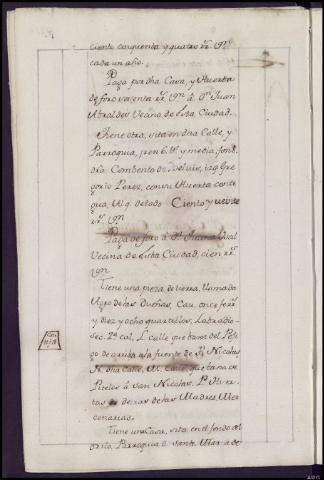 ciento cinquenta y quatro rr. vn
cada un año.
Paga por dha Casa, y Huerta
de foro sesenta rr. vn â Dn Juan
Vecino de esta Ciudad.
Tiene otra, sita en dha Calle, y
Parroquia, y media, fondo
dra. Combento de izq Gre
gorio Perez, con su Huerta conti
gua, Alq. de todo Ciento y veinte
rr. vn
Paga de foro â Dn Juan
Vecino de esta Ciudad, cien rr.
vn
Tiene una pieza de tierra, llamada
Agro de las Dueñas, Cav. once ferr.
y diez y ocho quartillos, Labradio
sec. 2ª cal. L. calle que baxa del
de arriba a la fuente de Sn Nicolas
N. dha calle, M. calle, que baxa de
Pitelos â San Nicolas. P.
tas de las Madres Mer
cenarias.
Tiene una Casa, sita en el fondo del
Parroquia de Santa Maria de